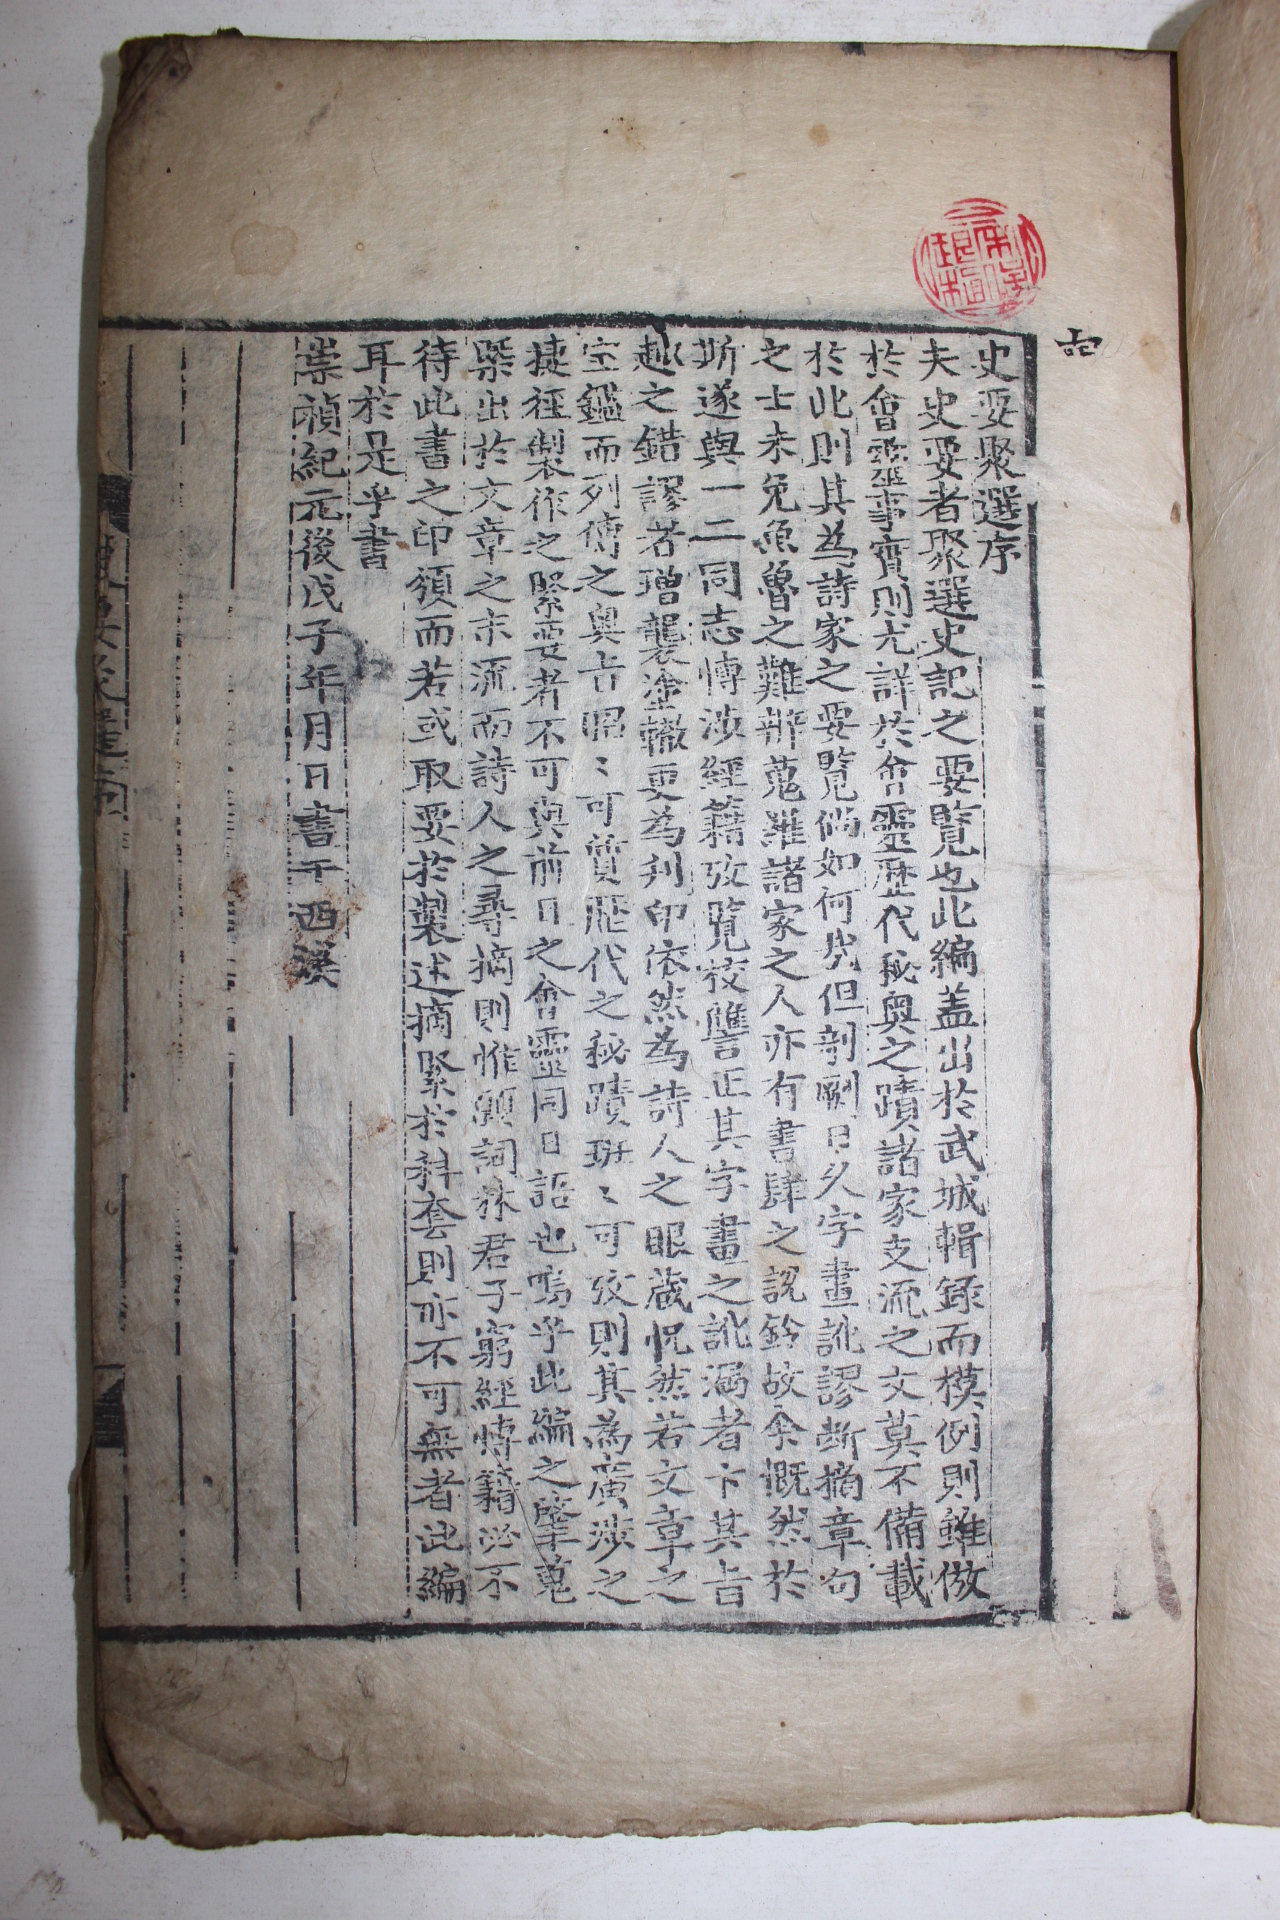 史要聚選序
夫史要者聚選史記之要覽也此編盖出於武城輯録而模例則雖倣
於會靈事實則尤詳於會靈歷代秘奧之蹟諸家支流之文莫不備載
於此則其為詩家之要覽倘如何哉但剞劂日久字畫訛謬斷摘章句
之士未免魚魯之難辨蒐羅諸家之人亦有書肆之說鈴故余慨然於
斯遂與一二同志愽涉經籍攷覽校讐正其字畫之訛漏者卞其旨
趣之錯謬若瑨襲塗轍更為刋印依然為詩人之眼蔵怳然若文章之
宝鑑而列傳之奥旨昭〻可質歷代之秘蹟班〻可攷則其為廣涉之
捷徑製作之緊要者不可與前日之會靈同日語也嗚乎此編之肇蒐
槩出於文章之末流而詩人之尋摘則惟願詞林君子窮經愽籍必不
待此書之印頒而若或取要於製述摘緊於科套則亦不可無者此編
耳於是乎書
崇禎紀元後戊子年月日書于西溪